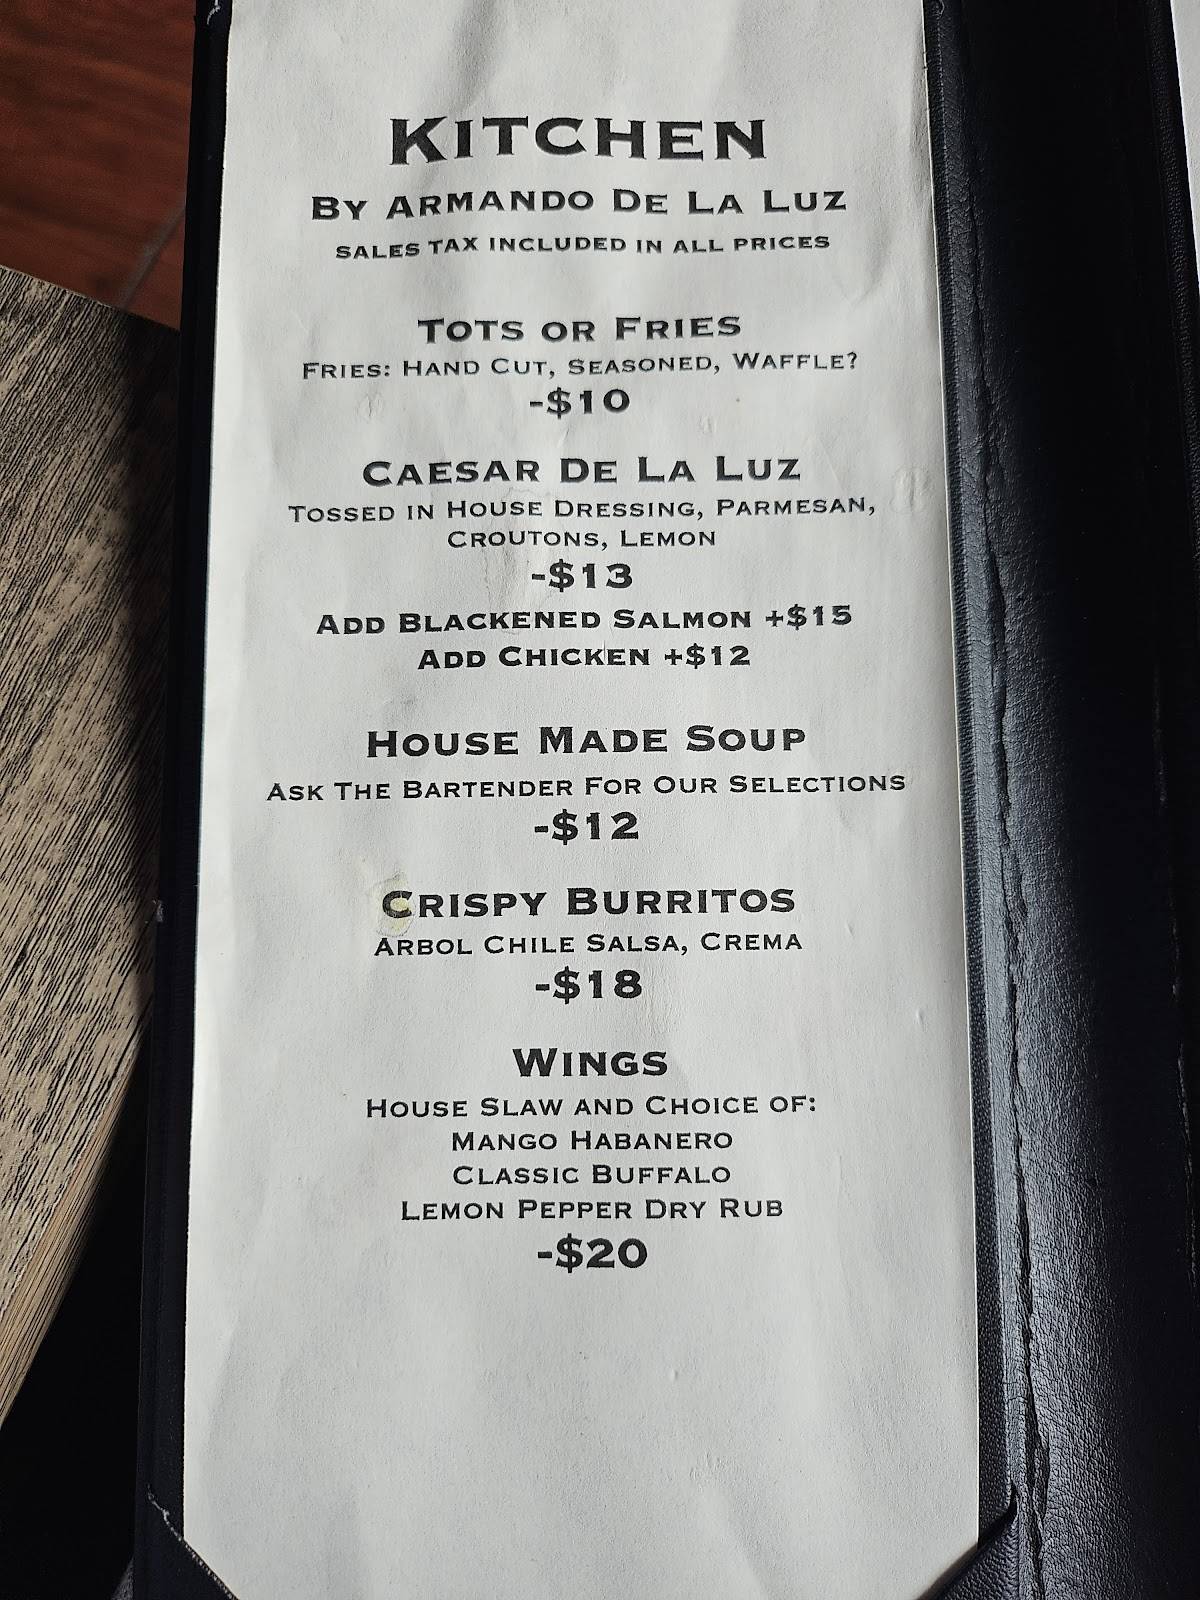 KITCHEN
BY ARMANDO DE LA LUZ
SALES TAX INCLUDED IN ALL PRICES
TOTS OR FRIES
FRIES: HAND CUT, SEASONED, WAFFLE?
-$10
CAESAR DE LA LUZ
TOSSED IN HOUSE DRESSING, PARMESAN,
CROUTONS, LEMON
-$13
ADD BLACKENED SALMON +$15
ADD CHICKEN +$12
HOUSE MADE SOUP
ASK THE BARTENDER FOR OUR SELECTIONS
-$12
CRISPY BURRITOS
ARBOL CHILE SALSA, CREMA
-$18
WINGS
HOUSE SLAW AND CHOICE OF:
MANGO HABANERO
CLASSIC BUFFALO
LEMON PEPPER DRY RUB
-$20